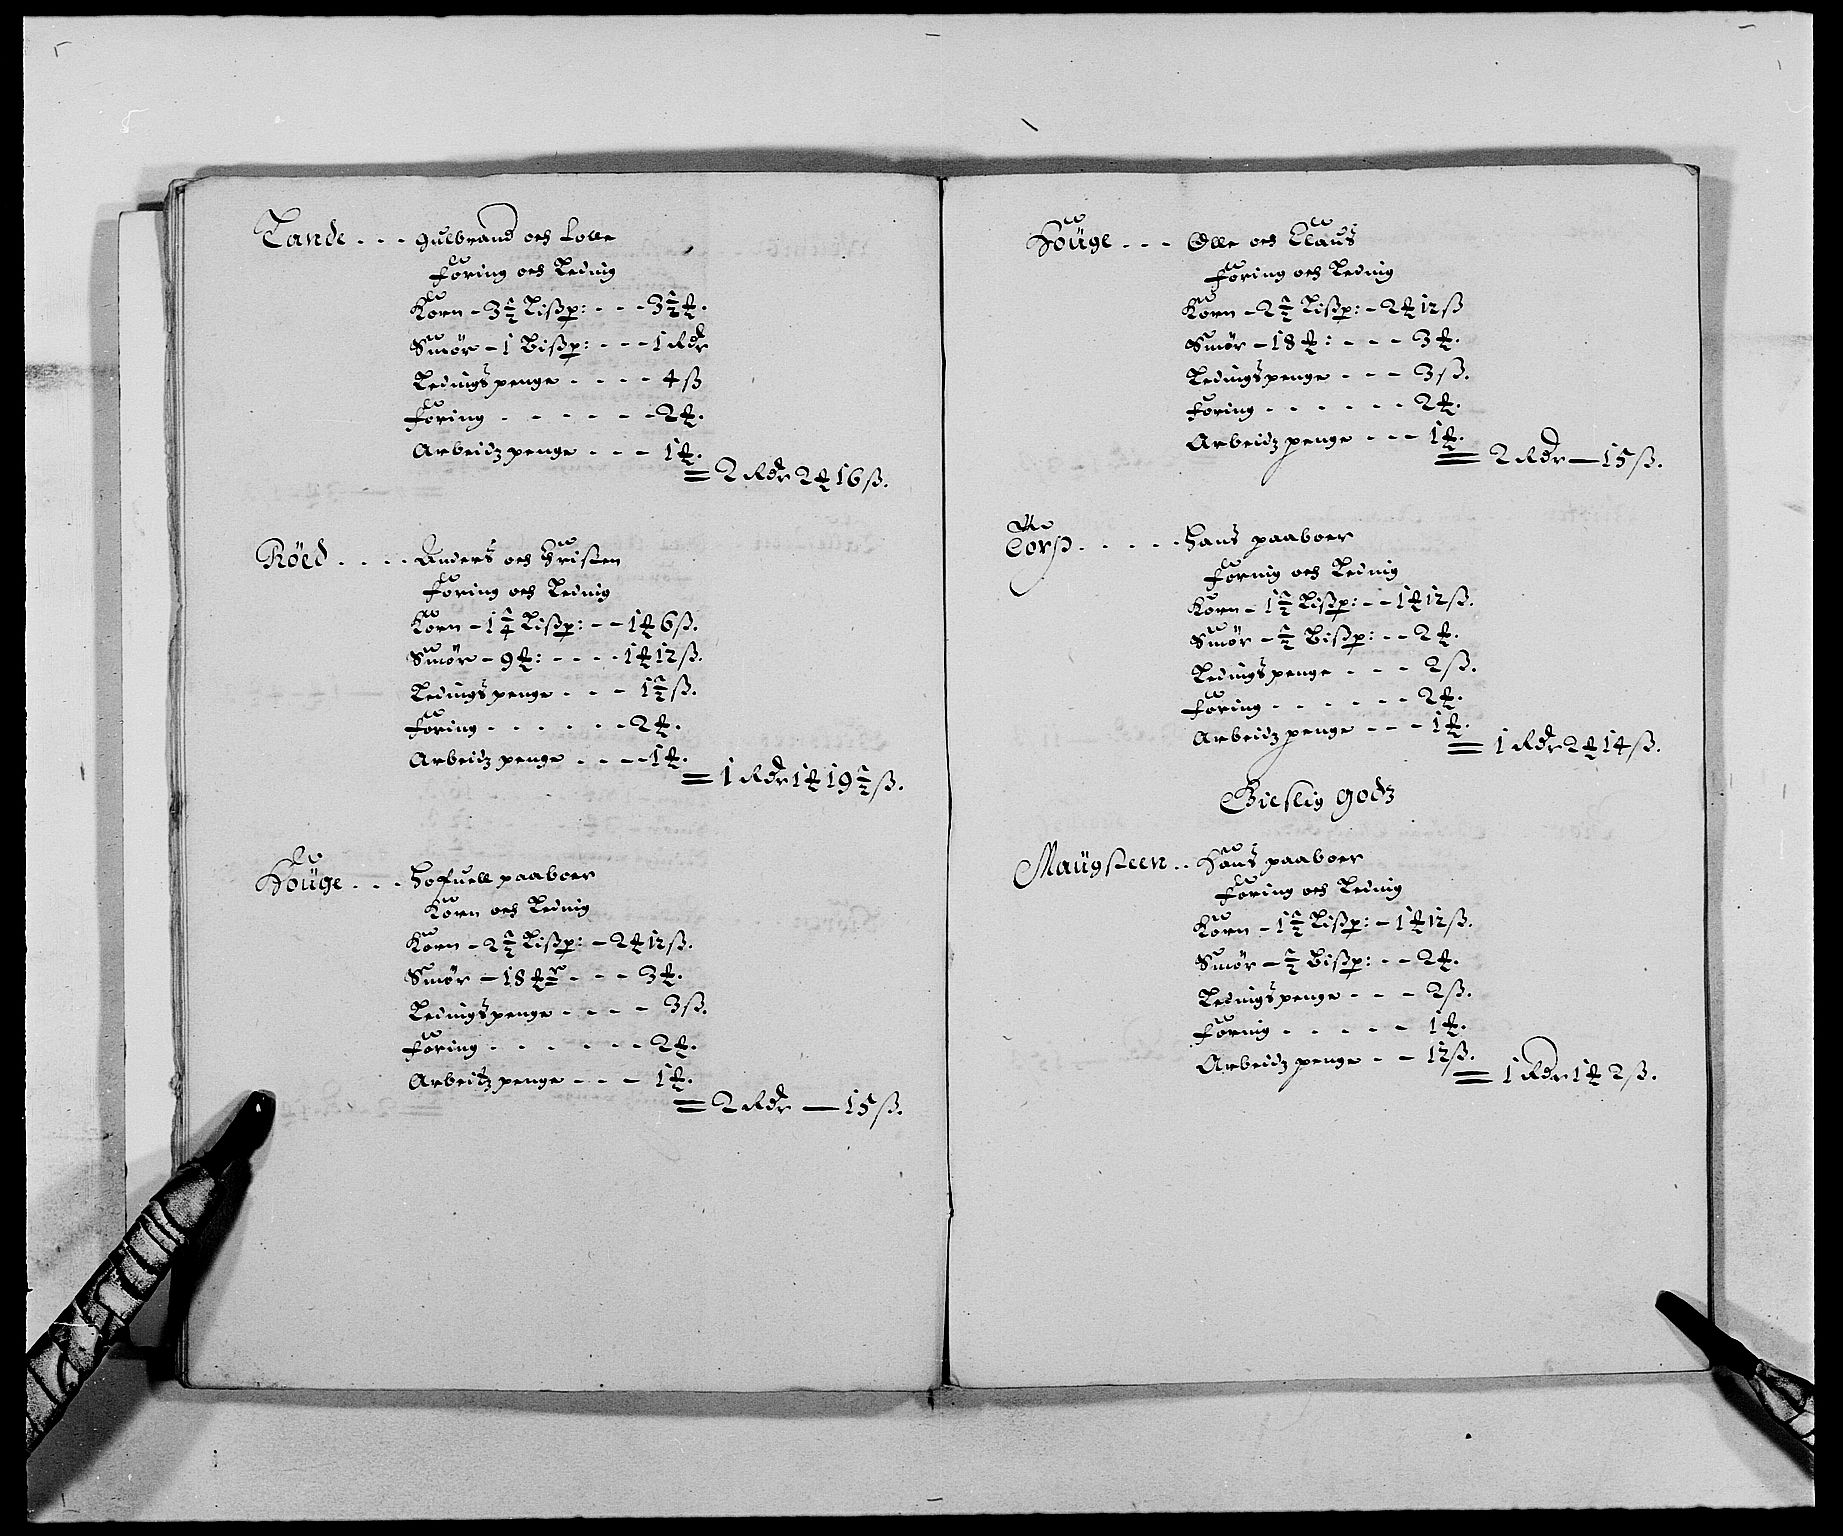 Tande . . . gulbrand och Lolle
foring och Leding
Korn - 3 1/2 Lißp: - - - 3 1/2 ₰.
Smør - 1 Bißp: - - - 1 Rdr
Ledingspenge - - - - 4 ß
foring - - - - - - 2 ₰.
Arbeidzpenge - - - 1 ₰.
= 2 Rdr 2 ₰ 16 ß.
Röed . . . . Anders och Christen
foring och Leding
Korn - 1 1/4 Lißp: - - 1 ₰ 6 ß.
Smør - 9 ₰: - - - - 1 ₰ 12 ß.
Ledingspenge - - - 1 1/2 ß.
foring - - - - - - 2 ₰.
Arbeidzpenge - - - - 1 ₰.
= 1 Rdr 1 ₰ 19 1/2 ß.
Houge . . . Hofuell paaboer
Korn och Leding
Korn - 2 1/2 Lißp: - 2 ₰ 12 ß.
Smør - 18 ₰ - - - 3 ₰.
Ledingspenge - - - - 3 ß.
foring - - - - - - 2 ₰.
Arbeitzpenge - - - 1 ₰.
= 2 Rdr — 15 ß.
Houge . . . Olle och Claus
foring och Leding
Korn - 2 1/2 Lißp: - 2 ₰ 12 ß
Smør - 18 ₰: - - - 3 ₰.
Ledingspenge - - - 3 ß.
foring - - - - - - 2 ₰.
Arbeidzpenge - - - 1 ₰.
= 2 Rdr — 15 ß.
Torp . . . . . Hans paaboer
fornig och Leding
Korn - 1 1/2 Lißp: - - 1 ₰ 12 ß.
Smør - 1/2 Bißp: - - 2 ₰.
Ledingspenge - - - 2 ß.
foring - - - - - - 2 ₰.
Arbeidzpenge - - - 1 ₰.
= 1 Rdr 2 ₰ 14 ß.
Gieslig godz
Maugsteen . . Hans paaboer
foring och Leding
Korn - 1 1/2 Lißp: - 1 ₰ 12 ß.
Smør - 1/2 Bißp: - - 2 ₰.
Ledingspenge - - - 2 ß.
fornig - - - - - 1 ₰.
Arbeidzpenge - - 12 ß.
= 1 Rdr 1 ₰ 2 ß.